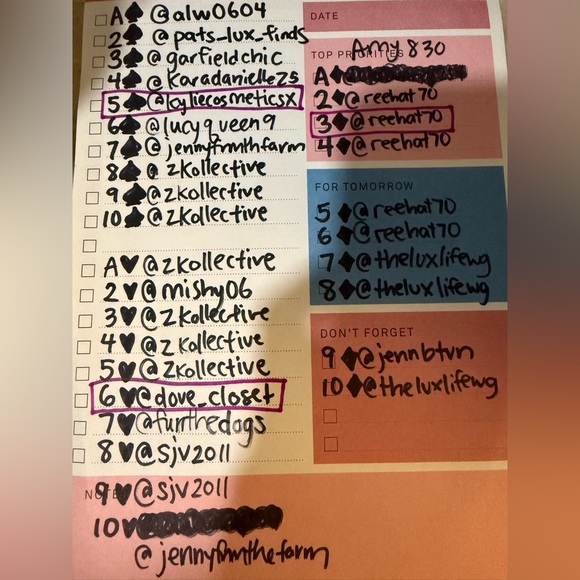 A♠ @alw0604
2♠ @pats_lux_finds
3♠ @garfieldchic
4♠ @Karadanielle75
5♠ @kyliecosmeticsx
6♠ @lucyqueen9
7♠ @jennyfrmthfarm
8♠ @zkollective
9♠ @zkollective
10♠ @zkollective
A♥ @zkollective
2♥ @mishy06
3♥ @zkollective
4♥ @zkollective
5♥ @zkollective
6♥ @dove_closet
7♥ @funthedogs
8♥ @sjv2011
NOTES
9♥ @sjv2011
10♥
@jennyfrmthefarm
DATE
TOP PRIORITIES
Amy 830
A♦
2♦ @reehat70
3♦ @reehat70
4♦ @reehat70
FOR TOMORROW
5♦ @reehat70
6♦ @reehat70
7♦ @theluxlifewg
8♦ @theluxlifewg
DON'T FORGET
9♦ @jennbtvn
10♦ @theluxlifewg